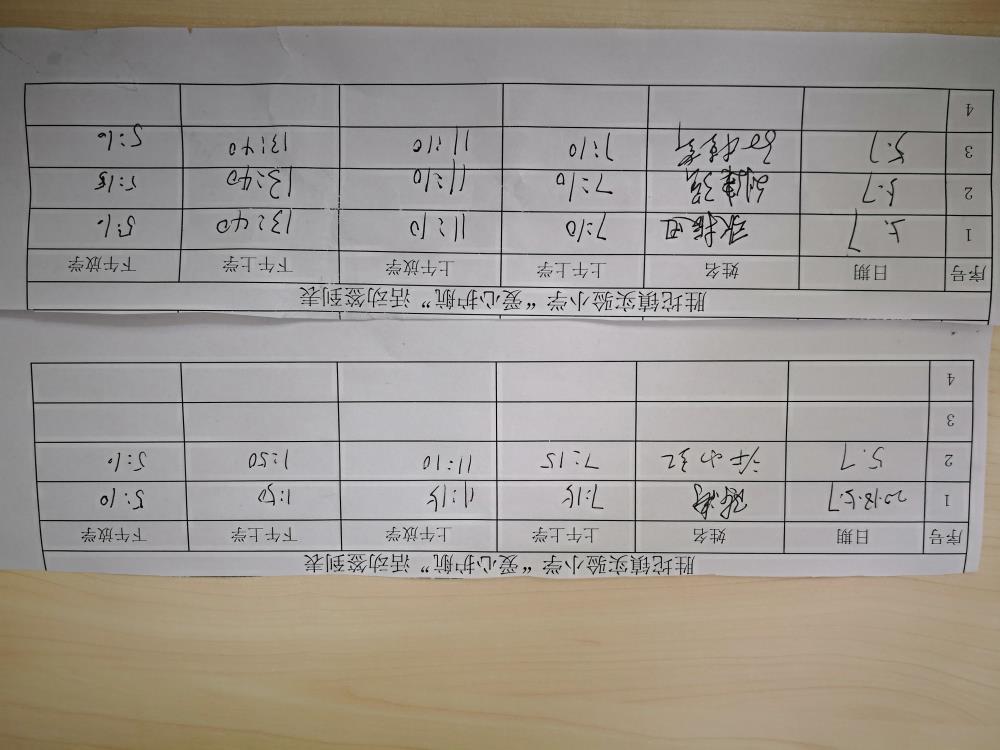 胜坨镇实验小学“爱心护航”活动签到表
序号 日期 姓名 上午上学 上午放学 下午上学 下午放学
1 2018.5.7 7:15 11:15 1:50 5:10
2 5.7 7:15 11:10 1:50 5:10
3
4
胜坨镇实验小学“爱心护航”活动签到表
序号 日期 姓名 上午上学 上午放学 下午上学 下午放学
1 5.7 7:10 11:10 13:40 5:10
2 5.7 刘建强 7:10 11:10 13:40 5:15
3 5.7 7:10 11:10 13:40 5:10
4